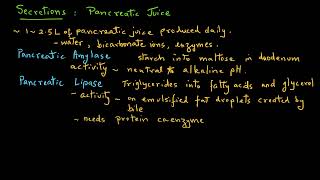 Secretions : Pancreatic Juice
~ 1~2.5L of pancreatic juice produced daily.
- water, bicarbonate ions, enzymes.
Pancreatic Amylase starch into maltose in duodenum
activity ~ neutral & alkaline pH.
Pancreatic Lipase Triglycerides into fatty acids and glycerol
- activity ~ on emulsified fat droplets created by
bile
~ needs protein coenzyme